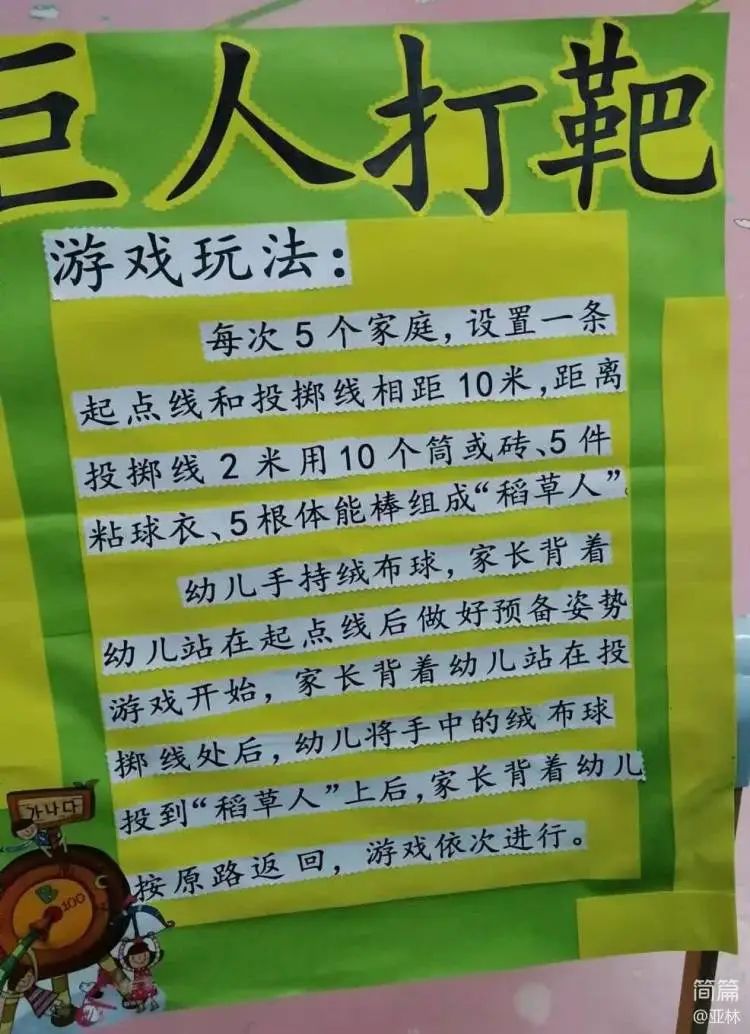 巨人打靶
游戏玩法：
每次5个家庭，设置一条
起点线和投掷线相距10米，距离
投掷线2米用10个筒或砖、5件
粘球衣、5根体能棒组成“稻草人”。
幼儿手持绒布球，家长背着
幼儿站在起点线后做好预备姿势
游戏开始，家长背着幼儿站在投
掷线处后，幼儿将手中的绒布球
投到“稻草人”上后，家长背着幼儿
按原路返回，游戏依次进行。
가나다
100
简篇
@亚林